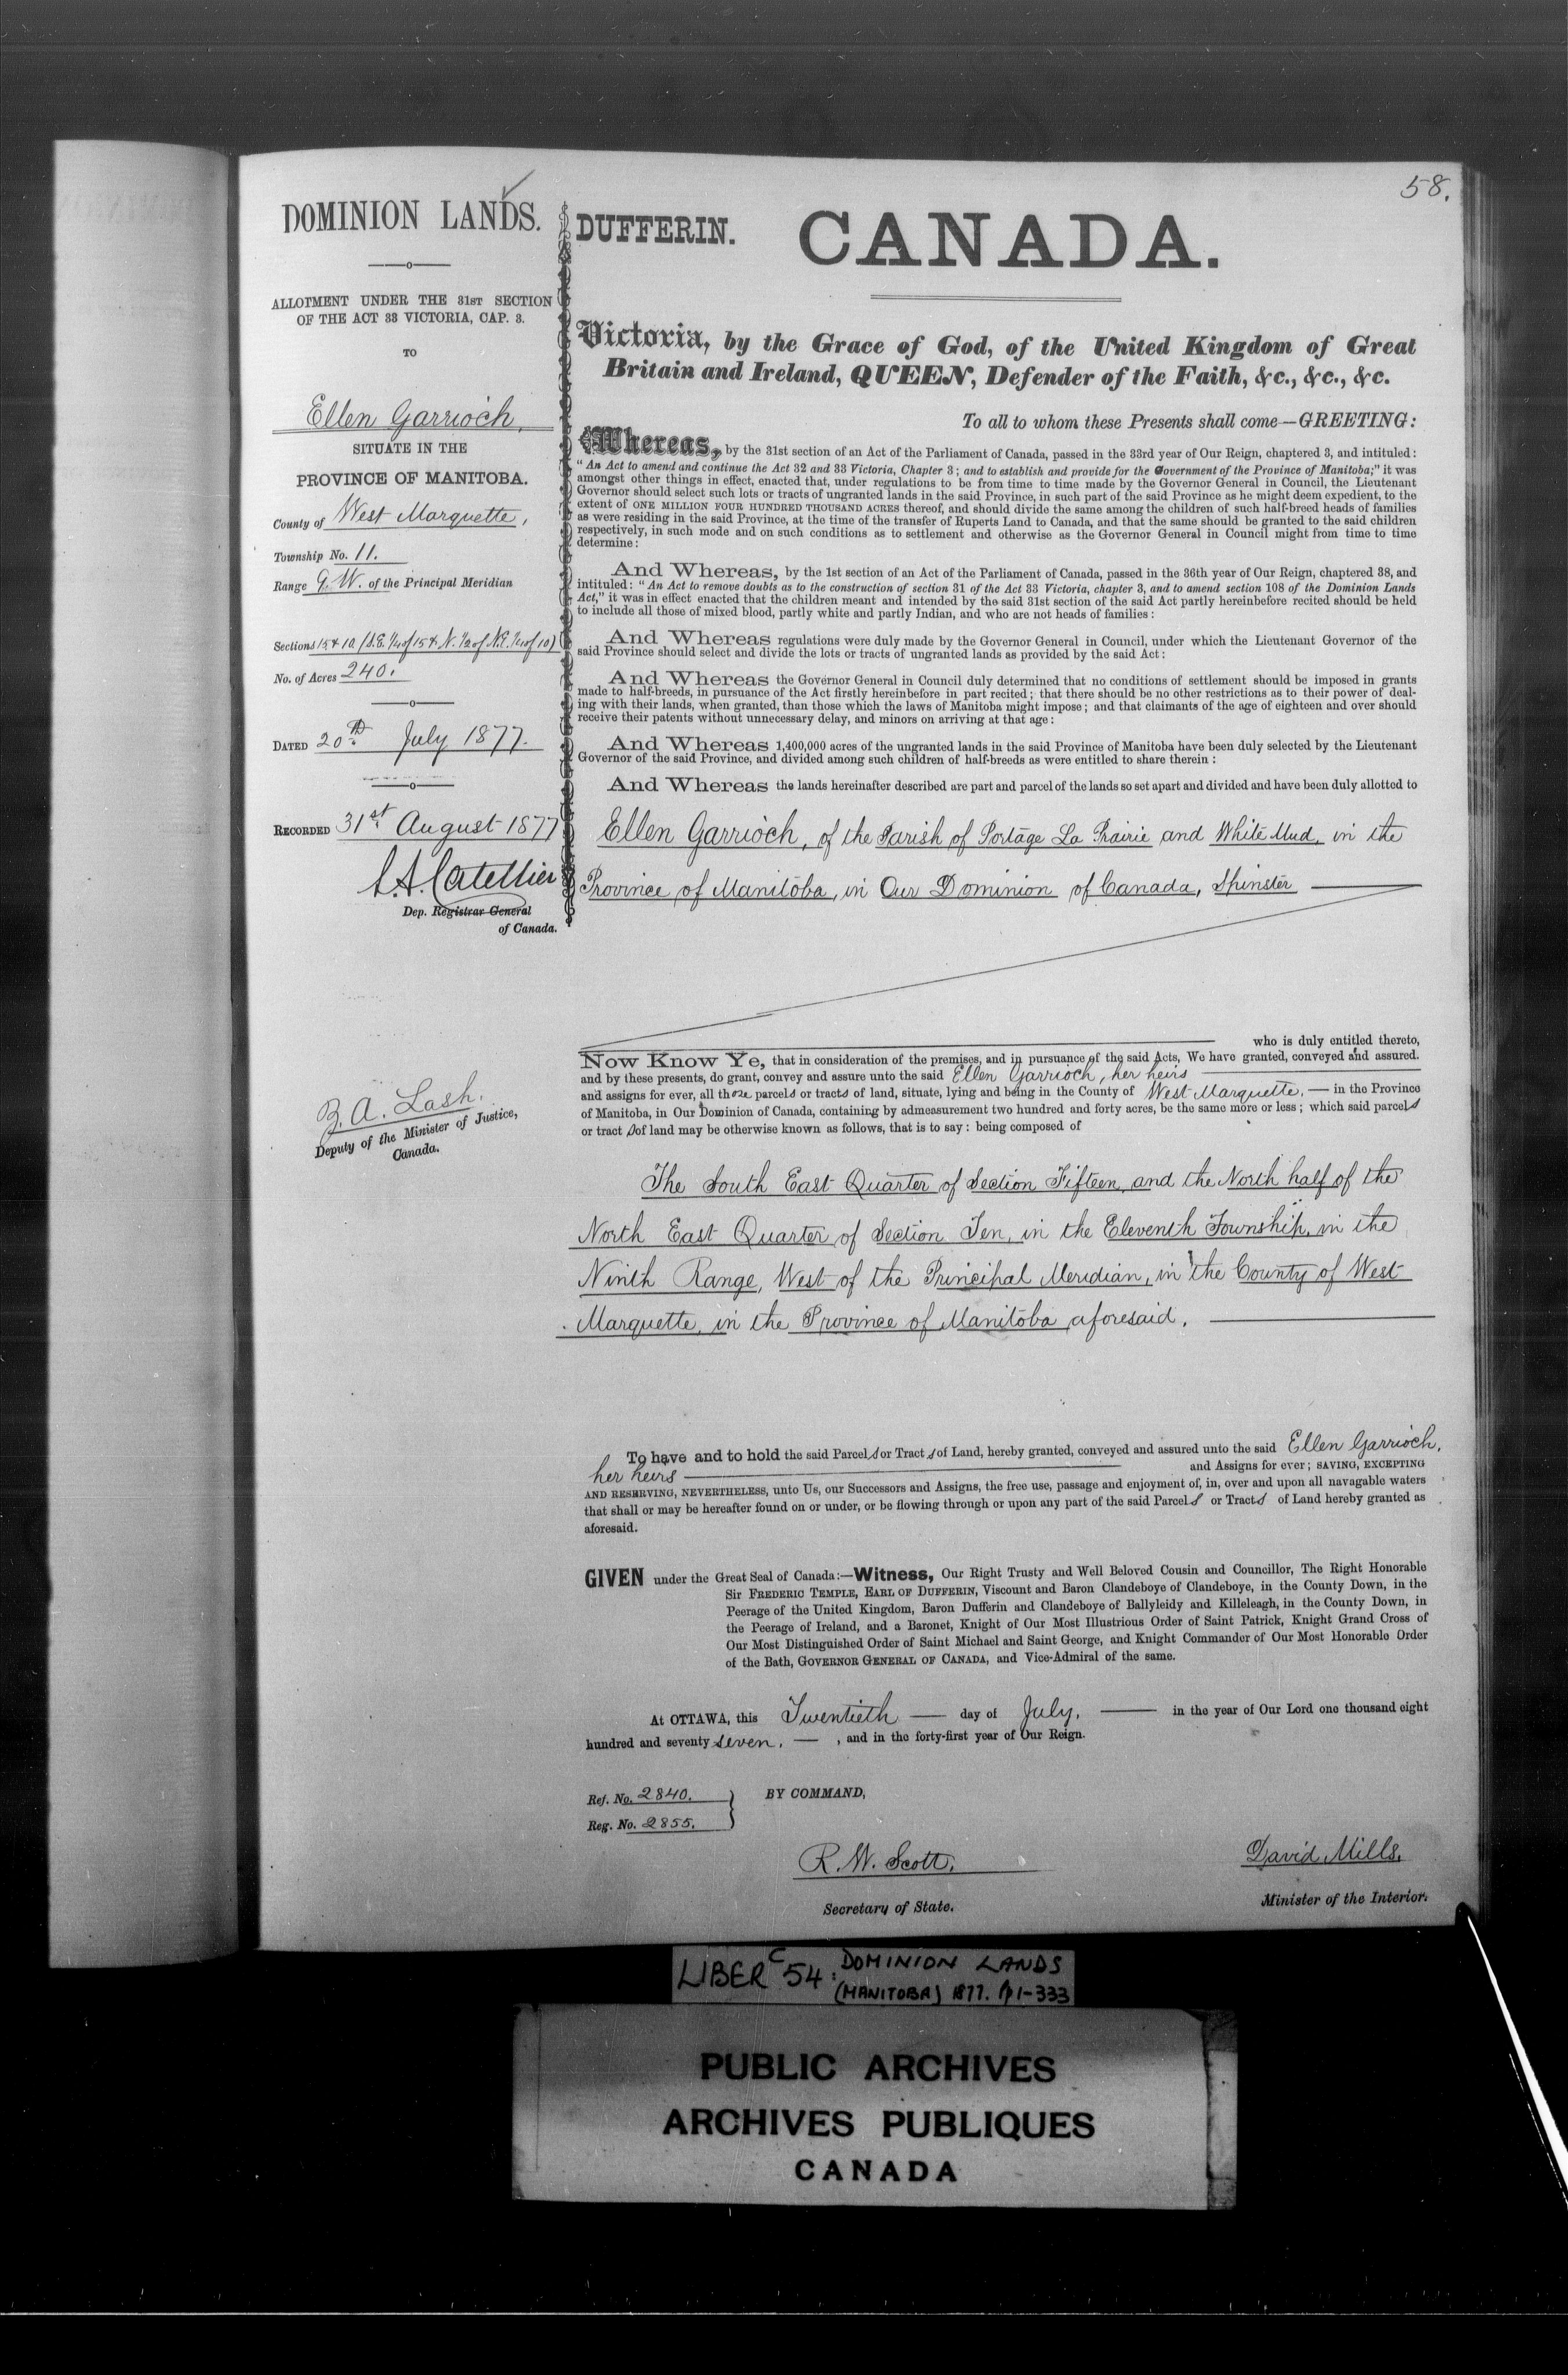 58.
DOMINION LANDS.
ALLOTMENT UNDER THE 31ST SECTION
OF THE ACT 33 VICTORIA, CAP. 3.
TO
Ellen Garrioch,
SITUATE IN THE
PROVINCE OF MANITOBA.
County of West Marquette,
Township No. 11.
Range 9. W. of the Principal Meridian
Sections 15 & 10 (S.E. 1/4 of 15 & N. 1/2 of N.E. 1/4 of 10)
No. of Acres 240.
DATED 20th July 1877.
RECORDED 31st August 1877
L.A. Catellier
Dep. Registrar General
of Canada.
Z. A. Lash.
Deputy of the Minister of Justice,
Canada.
DUFFERIN. CANADA.
Victoria, by the Grace of God, of the United Kingdom of Great
Britain and Ireland, QUEEN, Defender of the Faith, &c., &c., &c.
To all to whom these Presents shall come—GREETING:
Whereas, by the 31st section of an Act of the Parliament of Canada, passed in the 33rd year of Our Reign, chaptered 3, and intituled:
"An Act to amend and continue the Act 32 and 33 Victoria, Chapter 3; and to establish and provide for the Government of the Province of Manitoba;" it was
amongst other things in effect, enacted that, under regulations to be from time to time made by the Governor General in Council, the Lieutenant
Governor should select such lots or tracts of ungranted lands in the said Province, in such part of the said Province as he might deem expedient, to the
extent of ONE MILLION FOUR HUNDRED THOUSAND ACRES thereof, and should divide the same among the children of such half-breed heads of families
as were residing in the said Province, at the time of the transfer of Ruperts Land to Canada, and that the same should be granted to the said children
respectively, in such mode and on such conditions as to settlement and otherwise as the Governor General in Council might from time to time
determine:
And Whereas, by the 1st section of an Act of the Parliament of Canada, passed in the 36th year of Our Reign, chaptered 38, and
intituled: "An Act to remove doubts as to the construction of section 31 of the Act 33 Victoria, chapter 3, and to amend section 108 of the Dominion Lands
Act," it was in effect enacted that the children meant and intended by the said 31st section of the said Act partly hereinbefore recited should be held
to include all those of mixed blood, partly white and partly Indian, and who are not heads of families:
And Whereas regulations were duly made by the Governor General in Council, under which the Lieutenant Governor of the
said Province should select and divide the lots or tracts of ungranted lands as provided by the said Act:
And Whereas the Governor General in Council duly determined that no conditions of settlement should be imposed in grants
made to half-breeds, in pursuance of the Act firstly hereinbefore in part recited; that there should be no other restrictions as to their power of deal-
ing with their lands, when granted, than those which the laws of Manitoba might impose; and that claimants of the age of eighteen and over should
receive their patents without unnecessary delay, and minors on arriving at that age:
And Whereas 1,400,000 acres of the ungranted lands in the said Province of Manitoba have been duly selected by the Lieutenant
Governor of the said Province, and divided among such children of half-breeds as were entitled to share therein:
And Whereas the lands hereinafter described are part and parcel of the lands so set apart and divided and have been duly allotted to
Ellen Garrioch, of the Parish of Portage La Prairie and White Mud, in the
Province of Manitoba, in Our Dominion of Canada, Spinster
who is duly entitled thereto,
Now Know Ye, that in consideration of the premises, and in pursuance of the said Acts, We have granted, conveyed and assured.
and by these presents, do grant, convey and assure unto the said Ellen Garrioch, her heirs
and assigns for ever, all those parcels or tracts of land, situate, lying and being in the County of West Marquette, — in the Province
of Manitoba, in Our Dominion of Canada, containing by admeasurement two hundred and forty acres, be the same more or less; which said parcels
or tract s of land may be otherwise known as follows, that is to say: being composed of
The South East Quarter of Section Fifteen, and the North half of the
North East Quarter of Section Ten, in the Eleventh Township, in the
Ninth Range, West of the Principal Meridian, in the County of West
Marquette, in the Province of Manitoba aforesaid.
To have and to hold the said Parcels or Tracts of Land, hereby granted, conveyed and assured unto the said Ellen Garrioch,
her heirs and Assigns for ever; SAVING, EXCEPTING
AND RESERVING, NEVERTHELESS, unto Us, our Successors and Assigns, the free use, passage and enjoyment of, in, over and upon all navagable waters
that shall or may be hereafter found on or under, or be flowing through or upon any part of the said Parcels or Tracts of Land hereby granted as
aforesaid.
GIVEN under the Great Seal of Canada:—Witness, Our Right Trusty and Well Beloved Cousin and Councillor, The Right Honorable
Sir FREDERIC TEMPLE, EARL OF DUFFERIN, Viscount and Baron Clandeboye of Clandeboye, in the County Down, in the
Peerage of the United Kingdom, Baron Dufferin and Clandeboye of Ballyleidy and Killeleagh, in the County Down, in
the Peerage of Ireland, and a Baronet, Knight of Our Most Illustrious Order of Saint Patrick, Knight Grand Cross of
Our Most Distinguished Order of Saint Michael and Saint George, and Knight Commander of Our Most Honorable Order
of the Bath, GOVERNOR GENERAL OF CANADA, and Vice-Admiral of the same.
At OTTAWA, this Twentieth — day of July, — in the year of Our Lord one thousand eight
hundred and seventy seven. — , and in the forty-first year of Our Reign.
Ref. No. 2840.
Reg. No. 2855.
BY COMMAND,
R. W. Scott,
Secretary of State.
David Mills,
Minister of the Interior.
LIBER C54: DOMINION LANDS
(MANITOBA) 1877. p 1-333
PUBLIC ARCHIVES
ARCHIVES PUBLIQUES
CANADA